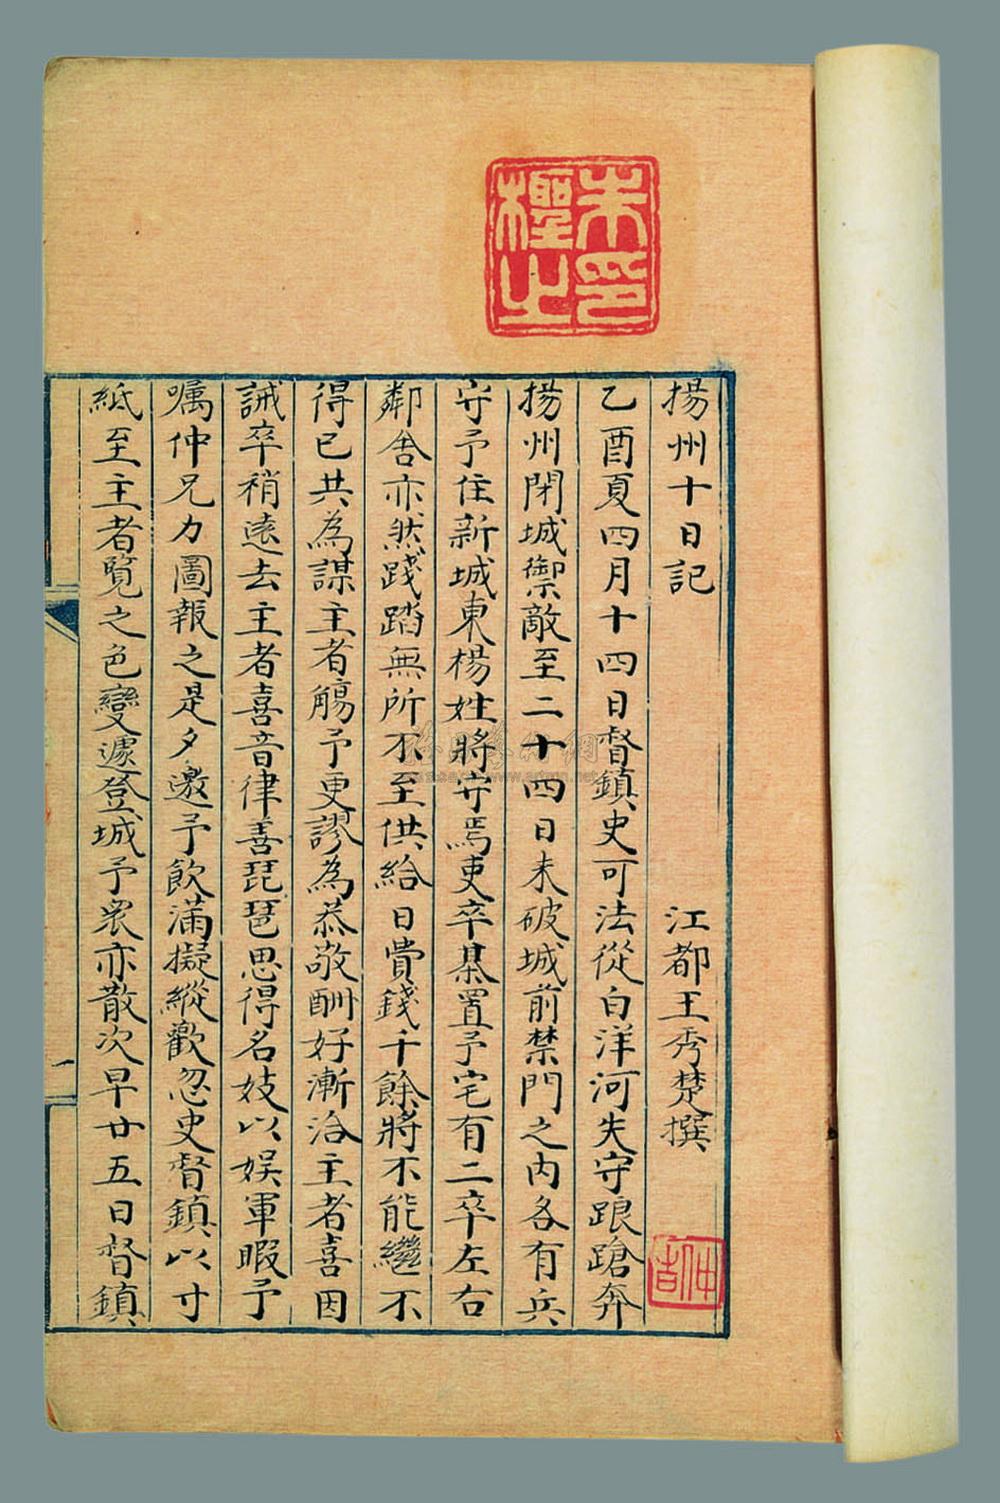 揚州十日記 江都王秀楚撰
乙酉夏四月十四日督鎮史可法從白洋河失守踉蹌奔
揚州閉城禦敵至二十四日未破城前禁門之内各有兵
守予住新城東楊姓將守焉吏卒棊置予宅有二卒左右
鄰舍亦然踐踏無所不至供給日費錢千餘將不能繼不
得已共為謀主者觴予更謬為恭敬酬好漸洽主者喜因
誡卒稍遠去主者喜音律善琵琶思得名妓以娱軍暇予
嘱仲兄力圖報之是夕邀予飲滿擬縱歡忽史督鎮以寸
紙至主者覧之色變遽登城予衆亦散次早廿五日督鎮